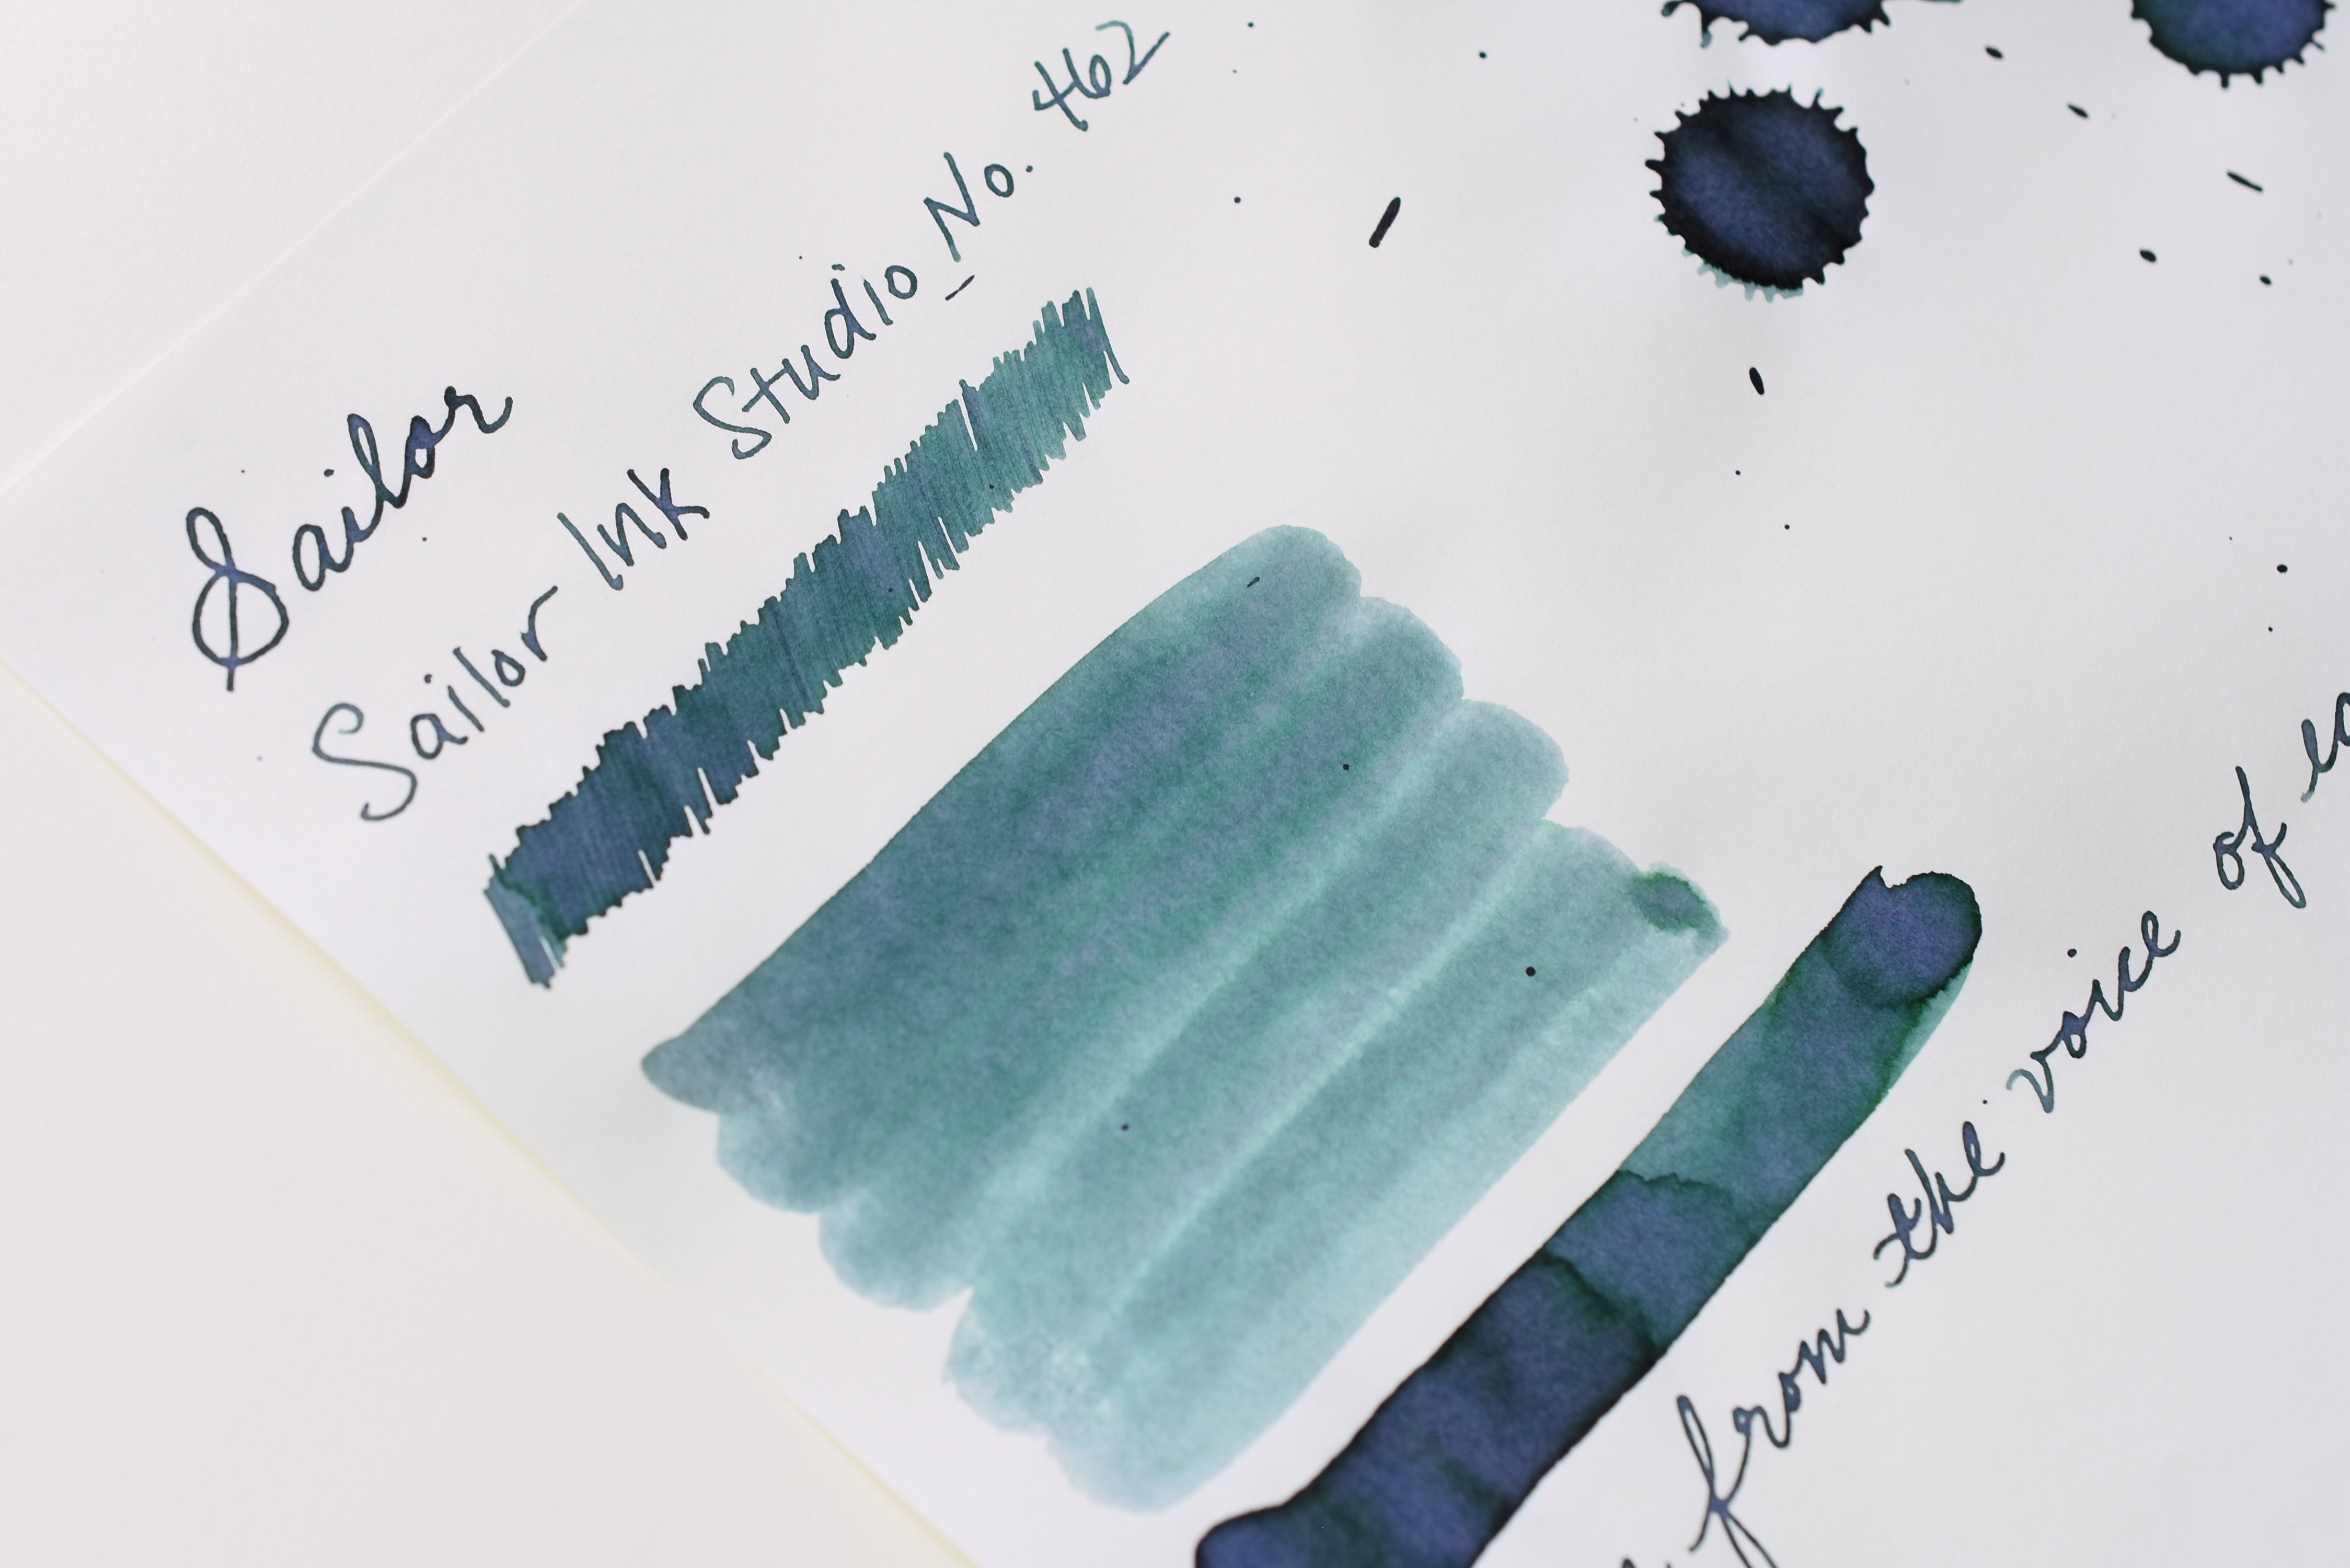 Sailor
Sailor Ink Studio_No. 462
from the voice of